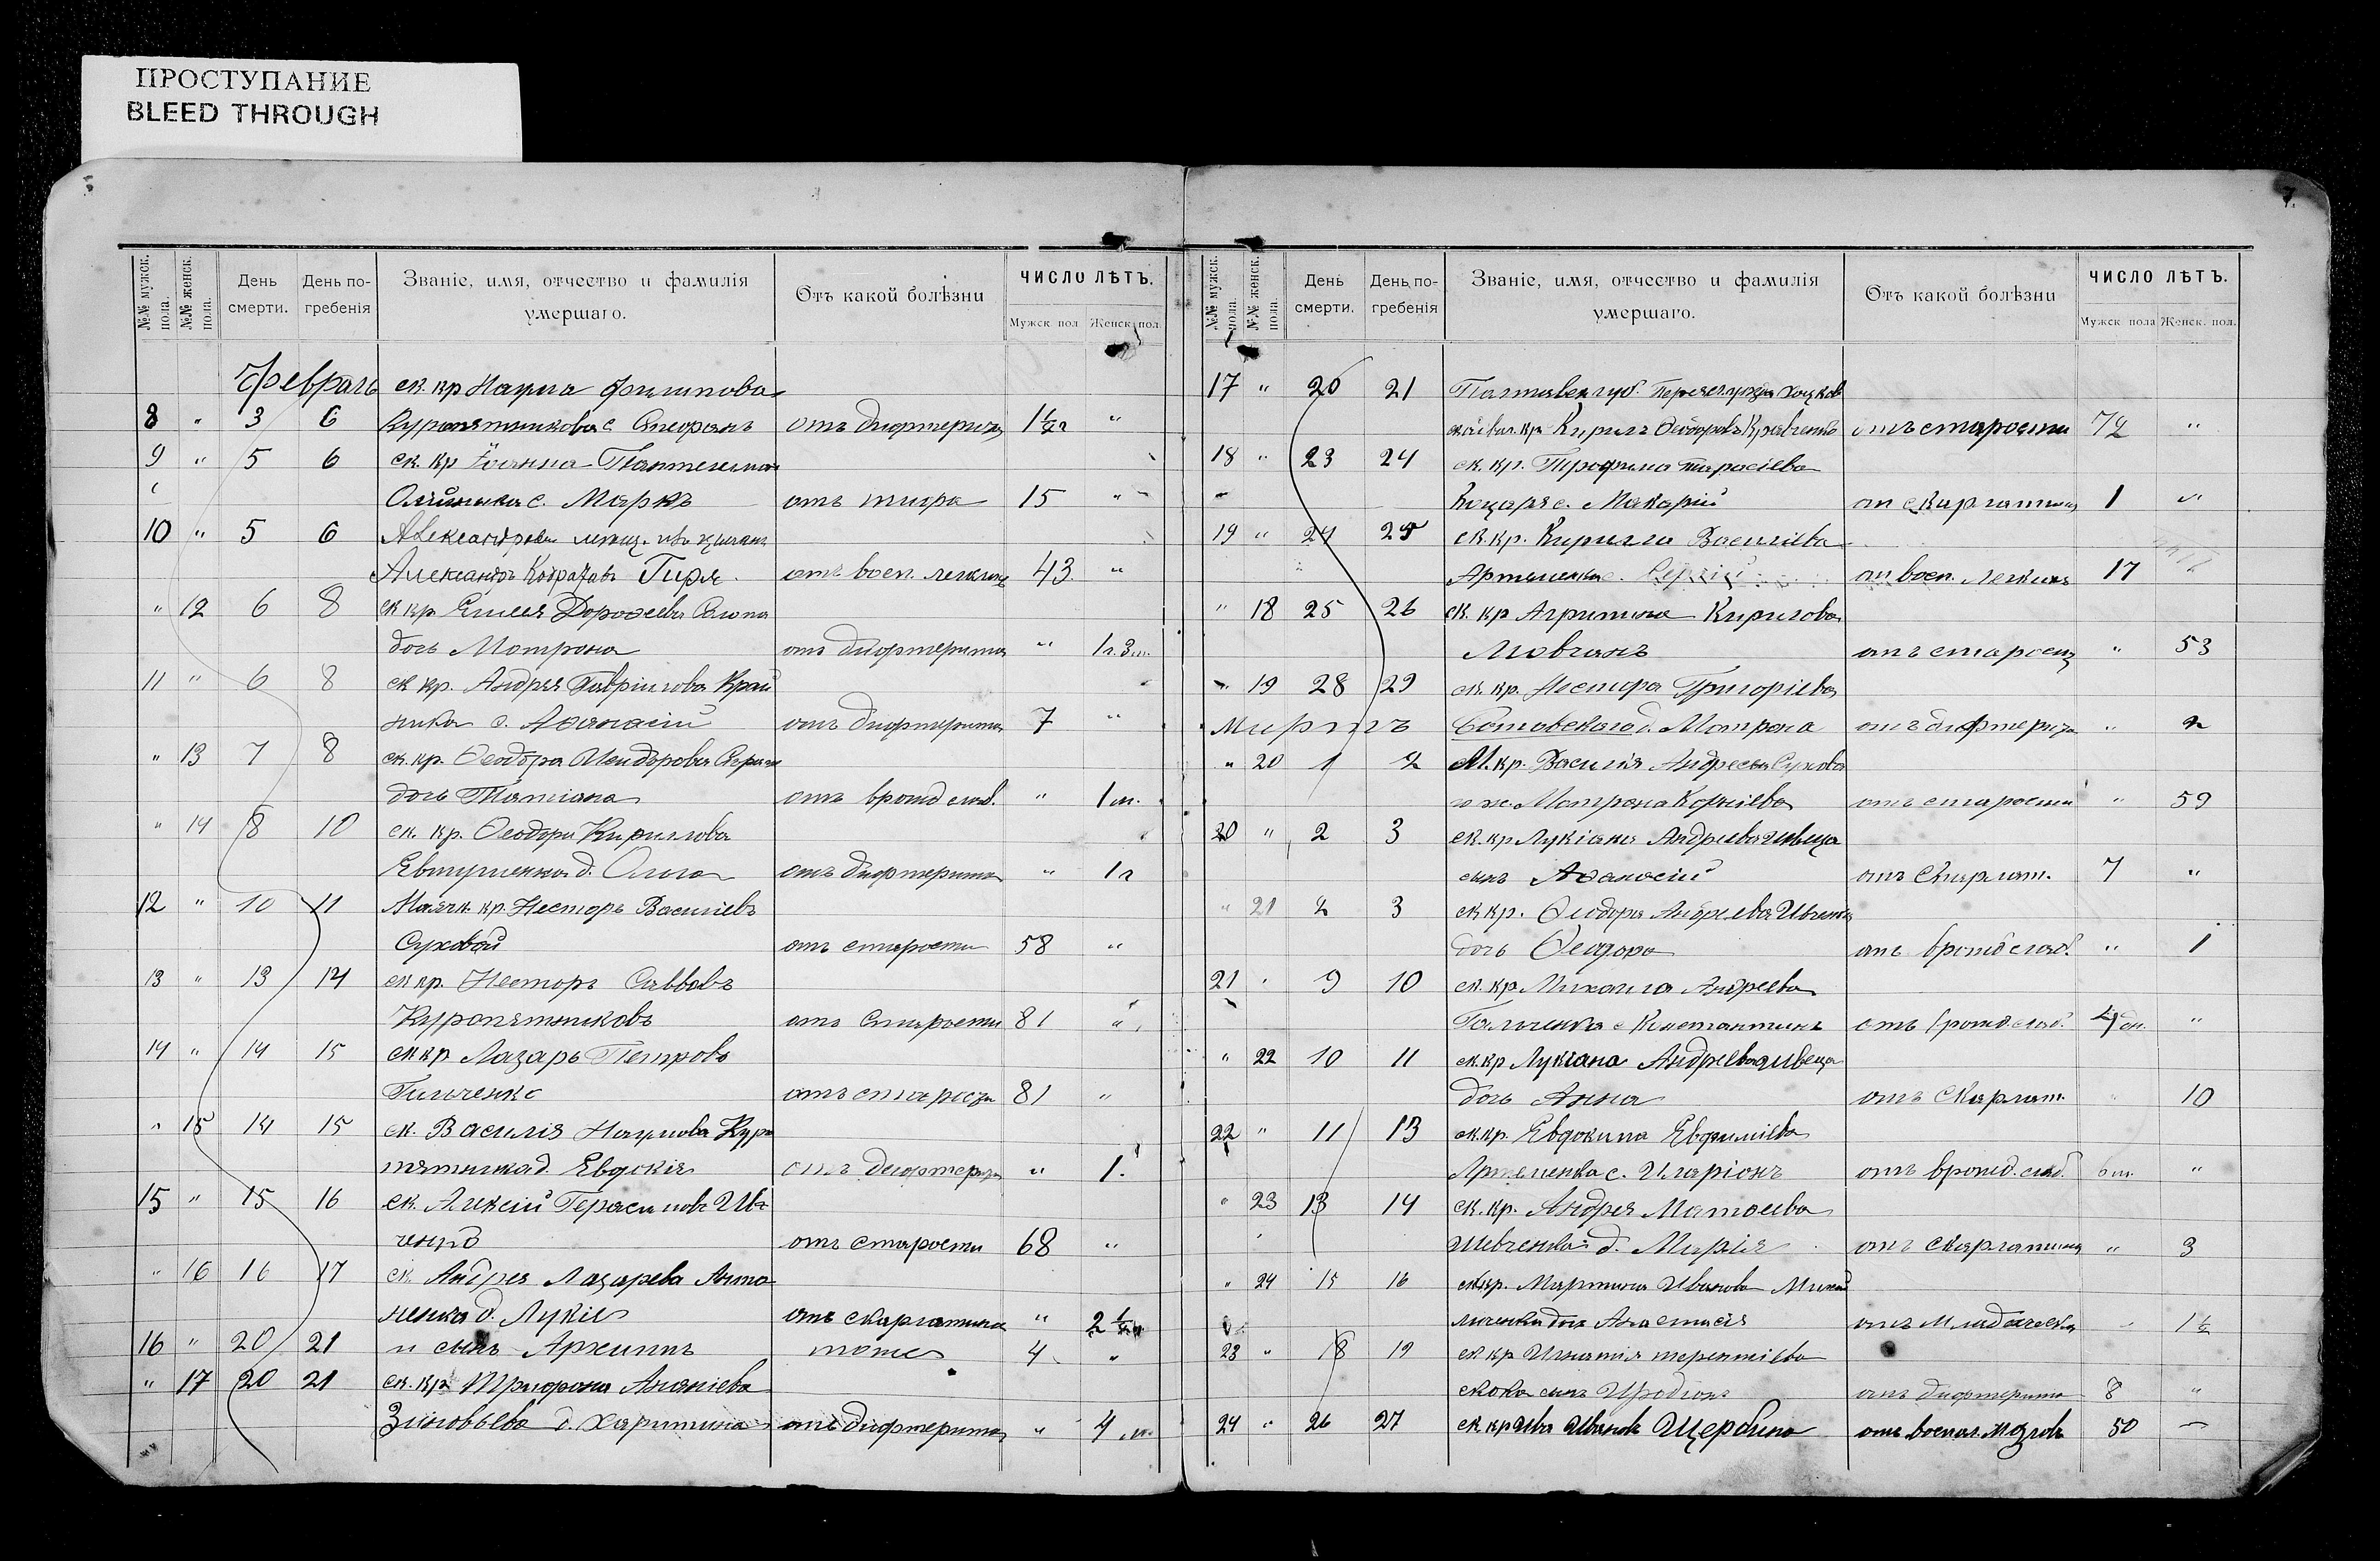 ПРОСТУПАНИЕ
BLEED THROUGH
7.
№№ мужск. пола.
№№ женск. пола.
День смерти.
День погребенія
Званіе, имя, отчество и фамилія умершаго.
Отъ какой болѣзни
ЧИСЛО ЛѢТЪ.
Мужск. пол Женск. пол.
Февраль ск. кр Наума Филипова
8 " 3 6 Куропятникова с. Стефанъ отъ дифтерита "
9 " 5 6 ск. кр Іоанна Пантелимона
Олійника с. Маркъ отъ тифа 15 "
10 " 5 6
Александръ Кодратовъ Гиря отъ восп. легкихъ 43 "
" 12 6 8 ск кр Елисея Дорофеева
дочь Матрона отъ дифтерита " 1 г. 3 м.
11 " 6 8 ск кр. Андрея Гавріилова Край
ника с. Афанасій отъ дифтерита 7 "
" 13 7 8 ск. кр. Ѳеодора
дочь Татіана отъ врожд слаб. " 1 м.
" 14 8 10 ск. кр. Ѳеодора Кирилова
Евтушенка д. Ольга отъ дифтерита " 1 г
12 " 10 11 Маячк. кр. Несторъ Василіевъ
Суховой отъ старости 58 "
13 " 13 14 ск кр. Несторъ Саввовъ
Куропятниковъ отъ старости 81 "
14 " 14 15 ск кр Лазарь Петровъ
Гильченко отъ старости 81 "
" 15 14 15 ск. Василія Наумова Куро
пятника д. Евдокія отъ дифтерита " 1.
15 " 15 16 ск. Алексій Герасимовъ Ив
ченко отъ старости 68 "
" 16 16 17 ск. Андрея Лазарева Анто
ненка д. Лукія отъ скарлатина " 2 1/2
16 " 20 21 и сынъ Архипъ тоже 4 "
" 17 20 21 ск. кр Трифона Ананіева
Зиновьева д. Харитина отъ дифтерита " 4 м.
№№ мужск. пола.
№№ женск. пола.
День смерти.
День погребенія
Званіе, имя, отчество и фамилія умершаго.
Отъ какой болѣзни
ЧИСЛО ЛѢТЪ.
Мужск. пола Женск. пол.
17 " 20 21 Полтавск губ.
Кирилъ Ѳеодоровъ Кравченко отъ старости 72 "
18 " 23 24 ск. кр. Трофима Тарасіева
Коцаря с. Макарій от скарлатины 1 "
19 " 24 25 ск. кр. Кирилла Василіева
Артеменка с. Сергій от восп. легкихъ 17
" 18 25 26 ск. кр Агрипина Кирилова
Мовчанъ отъ старости " 53
" 19 28 29 ск. кр. Нестора Григоріева
Мартъ д. Матрона отъ дифтерита " 2
" 20 1 2 М. кр. Василія Андреева Сухова
го ж. Матрона Корніева отъ старости " 59
20 " 2 3 ск. кр Лукіана Андріева Швеца
сынъ Афанасій отъ скарлат. 7 "
" 21 2 3 ск кр. Ѳеодора Андріева Ивченка
дочь Ѳеодора отъ врожд слаб. " 1
21 " 9 10 ск. кр Михаила Андреева
Гальченка с Константинъ отъ врожд. слаб. 4 дн. "
" 22 10 11 ск. кр Лукіана Андріева Швеца
дочь Анна отъ скарлат. " 10
22 " 11 13 ск. кр. Евдокима Евфиміева
Артеменка с. Иларіонъ отъ врожд. слаб. 6 м. "
" 23 13 14 ск. кр. Андрея Матѳіева
Шевченка д. Марія отъ скарлатины " 3
" 24 15 16 ск. кр. Мартина Иванова
дочь Анастасія отъ младенческой 1 1/2
23 " 18 19 ск кр Игнатія Терентіева
скока сынъ Иродіонъ отъ дифтерита 8 "
24 " 26 27 ск кр Ивановъ Щербина отъ воспал. мозговъ 50 –